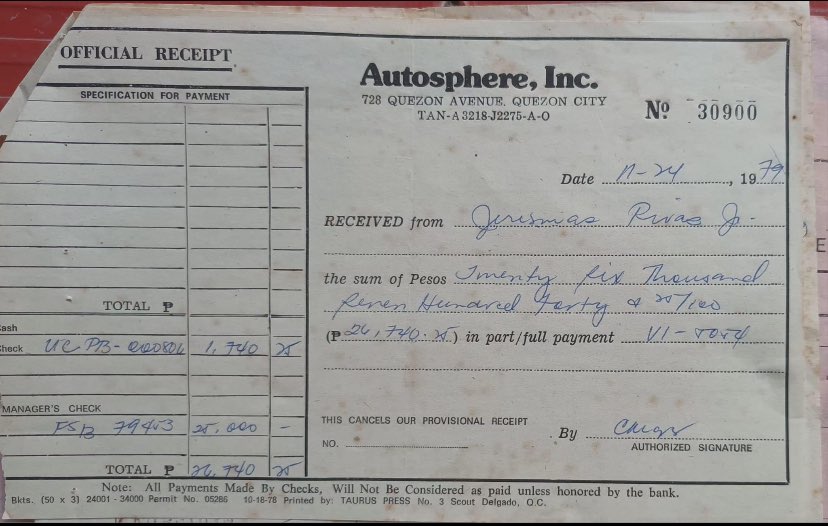 OFFICIAL RECEIPT
SPECIFICATION FOR PAYMENT
TOTAL ₱
Cash
Check UCPB-000806 1,740 25
MANAGER'S CHECK
FSB 79453 25,000 -
TOTAL ₱ 26,740 25
Autosphere, Inc.
728 QUEZON AVENUE. QUEZON CITY
TAN-A3218-J2275-A-O
Nº 30900
Date 11-24, 1979
RECEIVED from Jeremias Rivas Jr.
the sum of Pesos Twenty Six Thousand
Seven Hundred Forty & 25/100
(₱ 26,740.25) in part/full payment VI-5054
THIS CANCELS OUR PROVISIONAL RECEIPT
NO.
By
AUTHORIZED SIGNATURE
Note: All Payments Made By Checks, Will Not Be Considered as paid unless honored by the bank.
Bkts. (50 x 3) 24001 - 34000 Permit No. 05286 10-18-78 Printed by: TAURUS PRESS No. 3 Scout Delgado, Q.C.